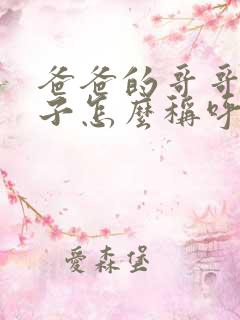 爸爸的哥哥
子怎麼稱呼
愛森堡